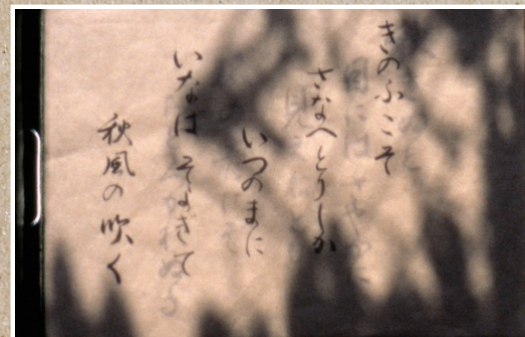 きのふこそ
さなへとりしか
いつのまに
いなはそよきて
秋風の吹く